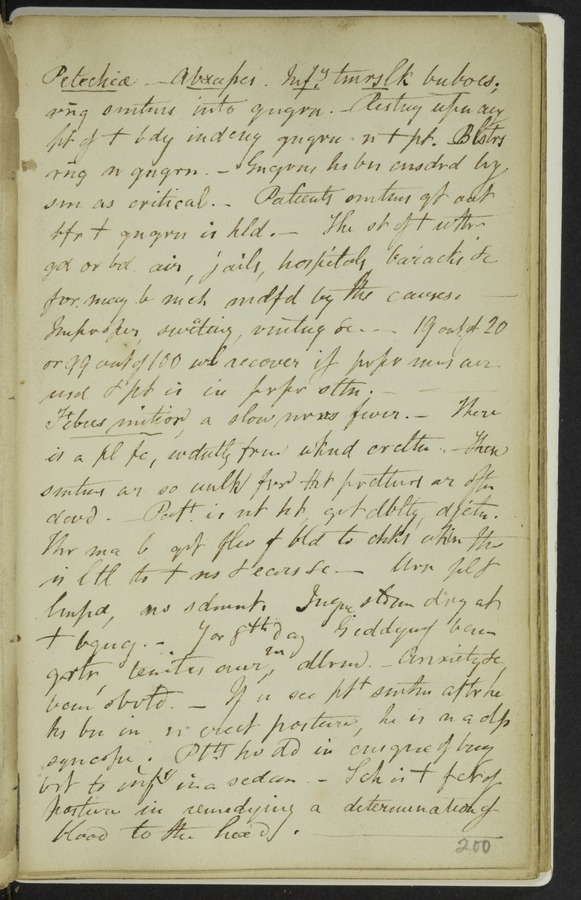 Petechiæ — Abscesses. Inf.y tmrs lk buboes.
rng smtms into gngrn. — Resting upn any
pt of + bdy indcng gngrn n + pt. Blstrs
rng n gngrn. — Gngrns hs bn cnsdrd by
sm as critical. — Patients smtms gt out
bfr + gngrn is hld. — The st of + wthr
gd or bd air, jails, hospitals, baracks &c
for may b mch mdfd by the causes. —
Improper sweating, vmtng &c. — 19 out of 20
or 99 out of 100 wl recover if prpr mns ar
usd & pt is in prpr sttn. —
Febris mitior, a slow nrvs fever. — There
is a pl fc,
smtms ar so
dcvd. — Pt. is nt ht, gt dblty,
Thr ma b gt flw f bld to chks whn thr
is ltl to +
limpid, no sdmnt. Tngue smtm dry at
+ bgng. — 7 or 8th day Giddyng
grtr, tinitus aur.m, dlrm. — Anxiety &c
— If u see pt smtms aftr he
hs bn in n erect posture, he is n a dp
syncope. Ptts hv dd in cnsqnce of bng
brt to inf.y in a sedan — Sch is + fct of
posture in remedying a determination of
blood to the head. —
200